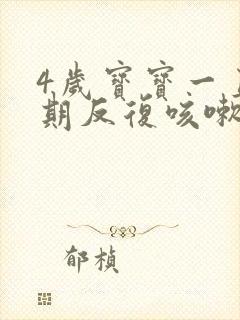 4歲寶寶一
期反復咳嗽
郁楨